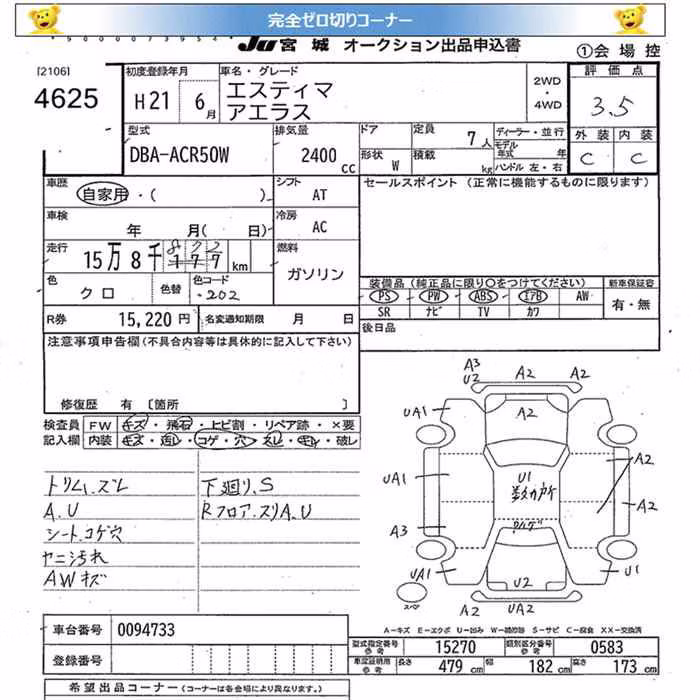 完全ゼロ切りコーナー
JU 宮城 オークション出品申込書
①会場控
[2106]
4625
初度登録年月
H21 6月
車名・グレード
エスティマ
アエラス
2WD
・
4WD
評価点
3.5
外装 内装
C C
型式
DBA-ACR50W
排気量
2400 cc
ドア
形状 W
定員 7人
積載 kg
ディーラー・並行
モデル年式 年
ハンドル 左・右
車歴
自家用・( )
シフト
AT
セールスポイント (正常に機能するものに限ります)
車検
年 月( 日)
冷房
AC
走行
15万8千177 km
822
燃料
ガソリン
色
クロ
色替
色コード
202
装備品 (純正品に限り〇をつけてください)
新車保証書
PS PW ABS エアB AW
有・無
SR ナビ TV カワ
R券 15,220円
名変通知期限 月 日
後日品
注意事項申告欄(不具合内容等は具体的に記入して下さい)
修復歴 有 〔箇所 〕
検査員
記入欄
FW キズ・飛石・ヒビ割・リペア跡・×要
内装 キズ・汚レ・コゲ・穴・スレ・キレ・破レ
トリム、ズレ
A.U
シート.コゲ穴
ヤニ汚れ
AWキズ
下廻り.S
Rフロア.スリA.U
A3
U2
A2
A2
UA1
A2
UA1
U1
数カ所
A2
A2
A3
UA1
U2
U1
スペア
A2
UA2
A-キズ E-エクボ U-凹み W-補修跡 S-サビ C-腐食 XX-交換済
車台番号 0094733
登録番号
型式指定番号 参考 15270
類別区分番号 参考 0583
車庫証明用 参考 長さ 479 cm 幅 182 cm 高さ 173 cm
希望出品コーナー (コーナーは各会場により異なります。)